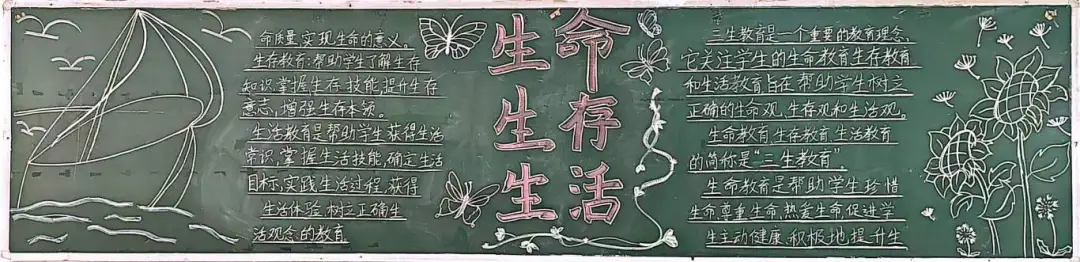 生命
生存
生活
三生教育是一个重要的教育理念,
它关注学生的生命教育生存教育
和生活教育旨在帮助学生树立
正确的生命观,生存观和生活观。
生命教育,生存教育,生活教育
的简称是“三生教育”。
生命教育是帮助学生珍惜
生命,尊重生命,热爱生命,促进学
生主动健康,积极地提升生
命质量,实现生命的意义。
生存教育:帮助学生了解生存
知识,掌握生存技能,提升生存
意志,增强生存本领。
生活教育是帮助学生获得生活
常识,掌握生活技能,确定生活
目标,实践生活过程,获得
生活体验,树立正确生
活观念的教育